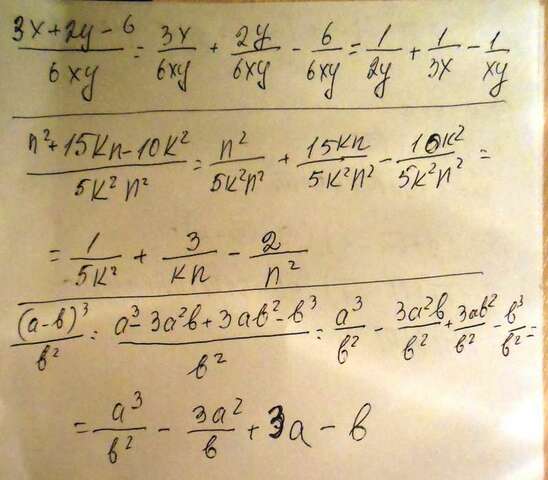 (3x+2y-6)/(6xy) = 3x/(6xy) + 2y/(6xy) - 6/(6xy) = 1/(2y) + 1/(3x) - 1/(xy)
(n²+15kn-10k²)/(5k²n²) = n²/(5k²n²) + 15kn/(5k²n²) - 10k²/(5k²n²) =
= 1/(5k²) + 3/(kn) - 2/n²
(a-b)³/b² = (a³-3a²b+3ab²-b³)/b² = a³/b² - 3a²b/b² + 3ab²/b² - b³/b² =
= a³/b² - 3a²/b + 3a - b